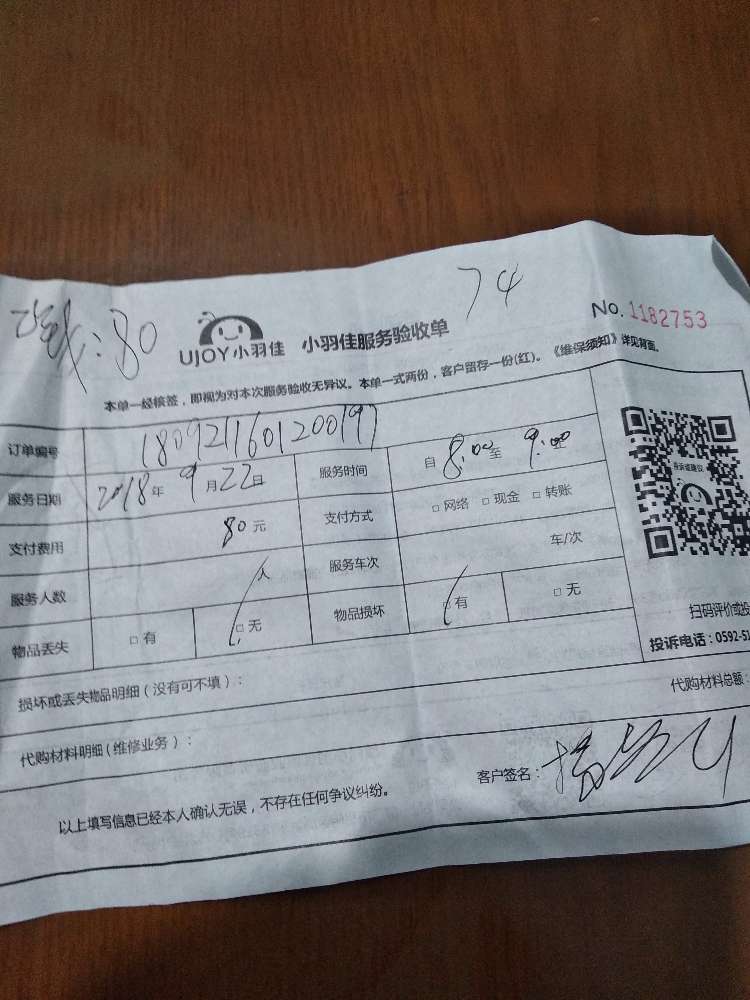 74
:80
UJOY小羽佳 小羽佳服务验收单 No. 1182753
本单一经核签，即视为对本次服务验收无异议。本单一式两份，客户留存一份(红)。《维保须知》详见背面。
订单编号 180921160120019
服务日期 2018年9月22日 服务时间 自8:00至9:00
支付费用 80元 支付方式 □网络 □现金 □转账
服务人数 人 服务车次 车/次
物品丢失 □有 □无 物品损坏 □有 □无
投诉或建议
扫码评价或投
投诉电话：0592-51
损坏或丢失物品明细（没有可不填）：
代购材料明细（维修业务）： 代购材料总额：
客户签名：
以上填写信息已经本人确认无误，不存在任何争议纠纷。